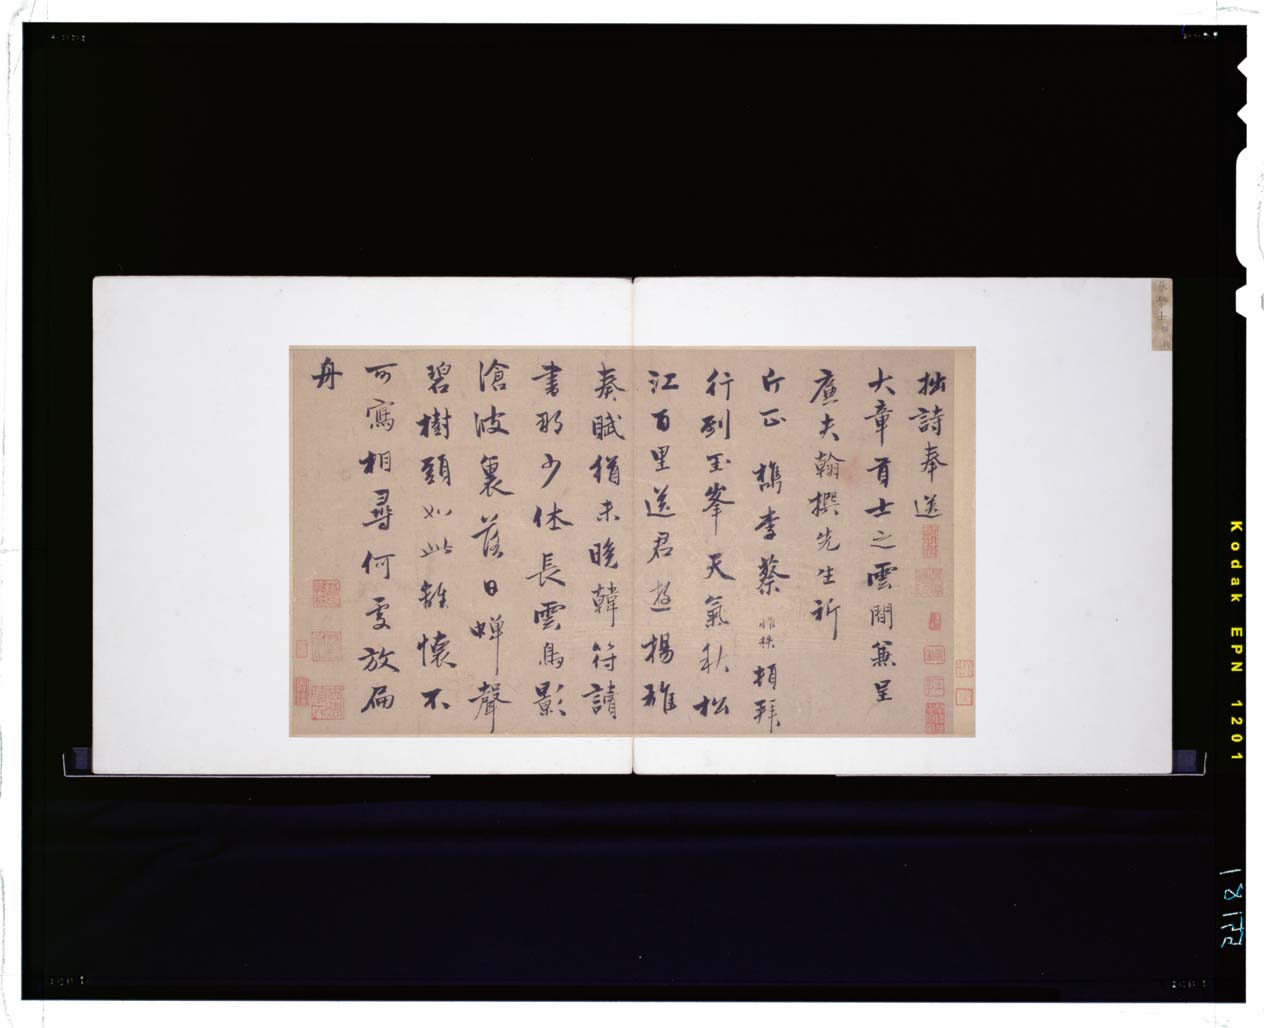 拙詩奉送
大章貢士之雲間兼呈
廉夫翰撰先生祈
斤正 檇李蔡惟秩頓拜
行到玉峯天氣秋松
江百里送君遊揚雄
奏賦猶未晚韓符請
書那少休長雲鳥影
滄波裏落日蟬聲
碧樹頭如此離懷不
可寫相尋何處放扁
舟
Kodak EPN 1201